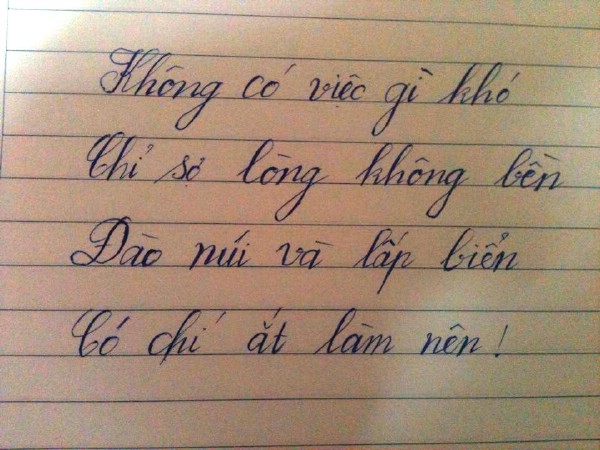 Không có việc gì khó
Chỉ sợ lòng không bền
Đào núi và lấp biển
Có chí ắt làm nên!